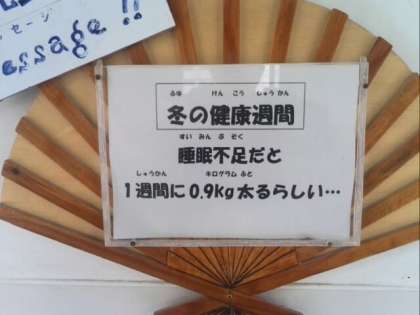 セージ
essage!!
ふゆ けん こう しゅうかん
冬の健康週間
すい みん ぶ そく
睡眠不足だと
しゅうかん キログラム ふと
1週間に0.9kg太るらしい…